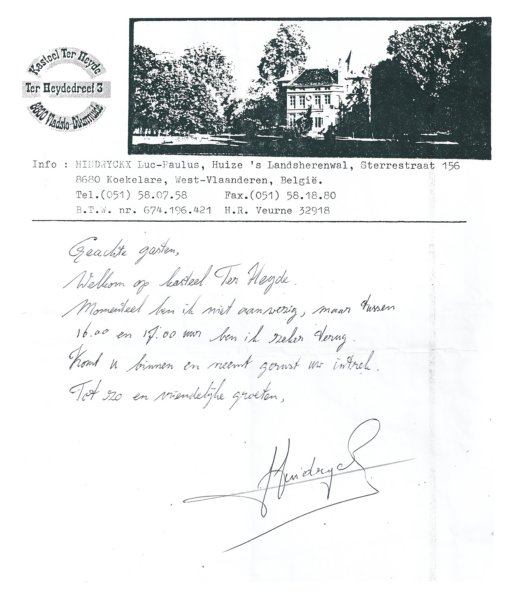 Kasteel Ter Heyde
Ter Heydedreef 3
8600 Vladslo-Diksmuide
Info : HINDRYCKX Luc-Paulus, Huize 's Landsherenwal, Sterrestraat 156
8680 Koekelare, West-Vlaanderen, België.
Tel.(051) 58.07.58 Fax.(051) 58.18.80
B.T.W. nr. 674.196.421 H.R. Veurne 32918
Geachte gasten,
Welkom op kasteel Ter Heyde.
Momenteel ben ik niet aanwezig, maar tussen
16.00 en 17.00 uur ben ik zeker terug.
Komt u binnen en neemt gerust uw intrek.
Tot zo en vriendelijke groeten,
Hindryckx